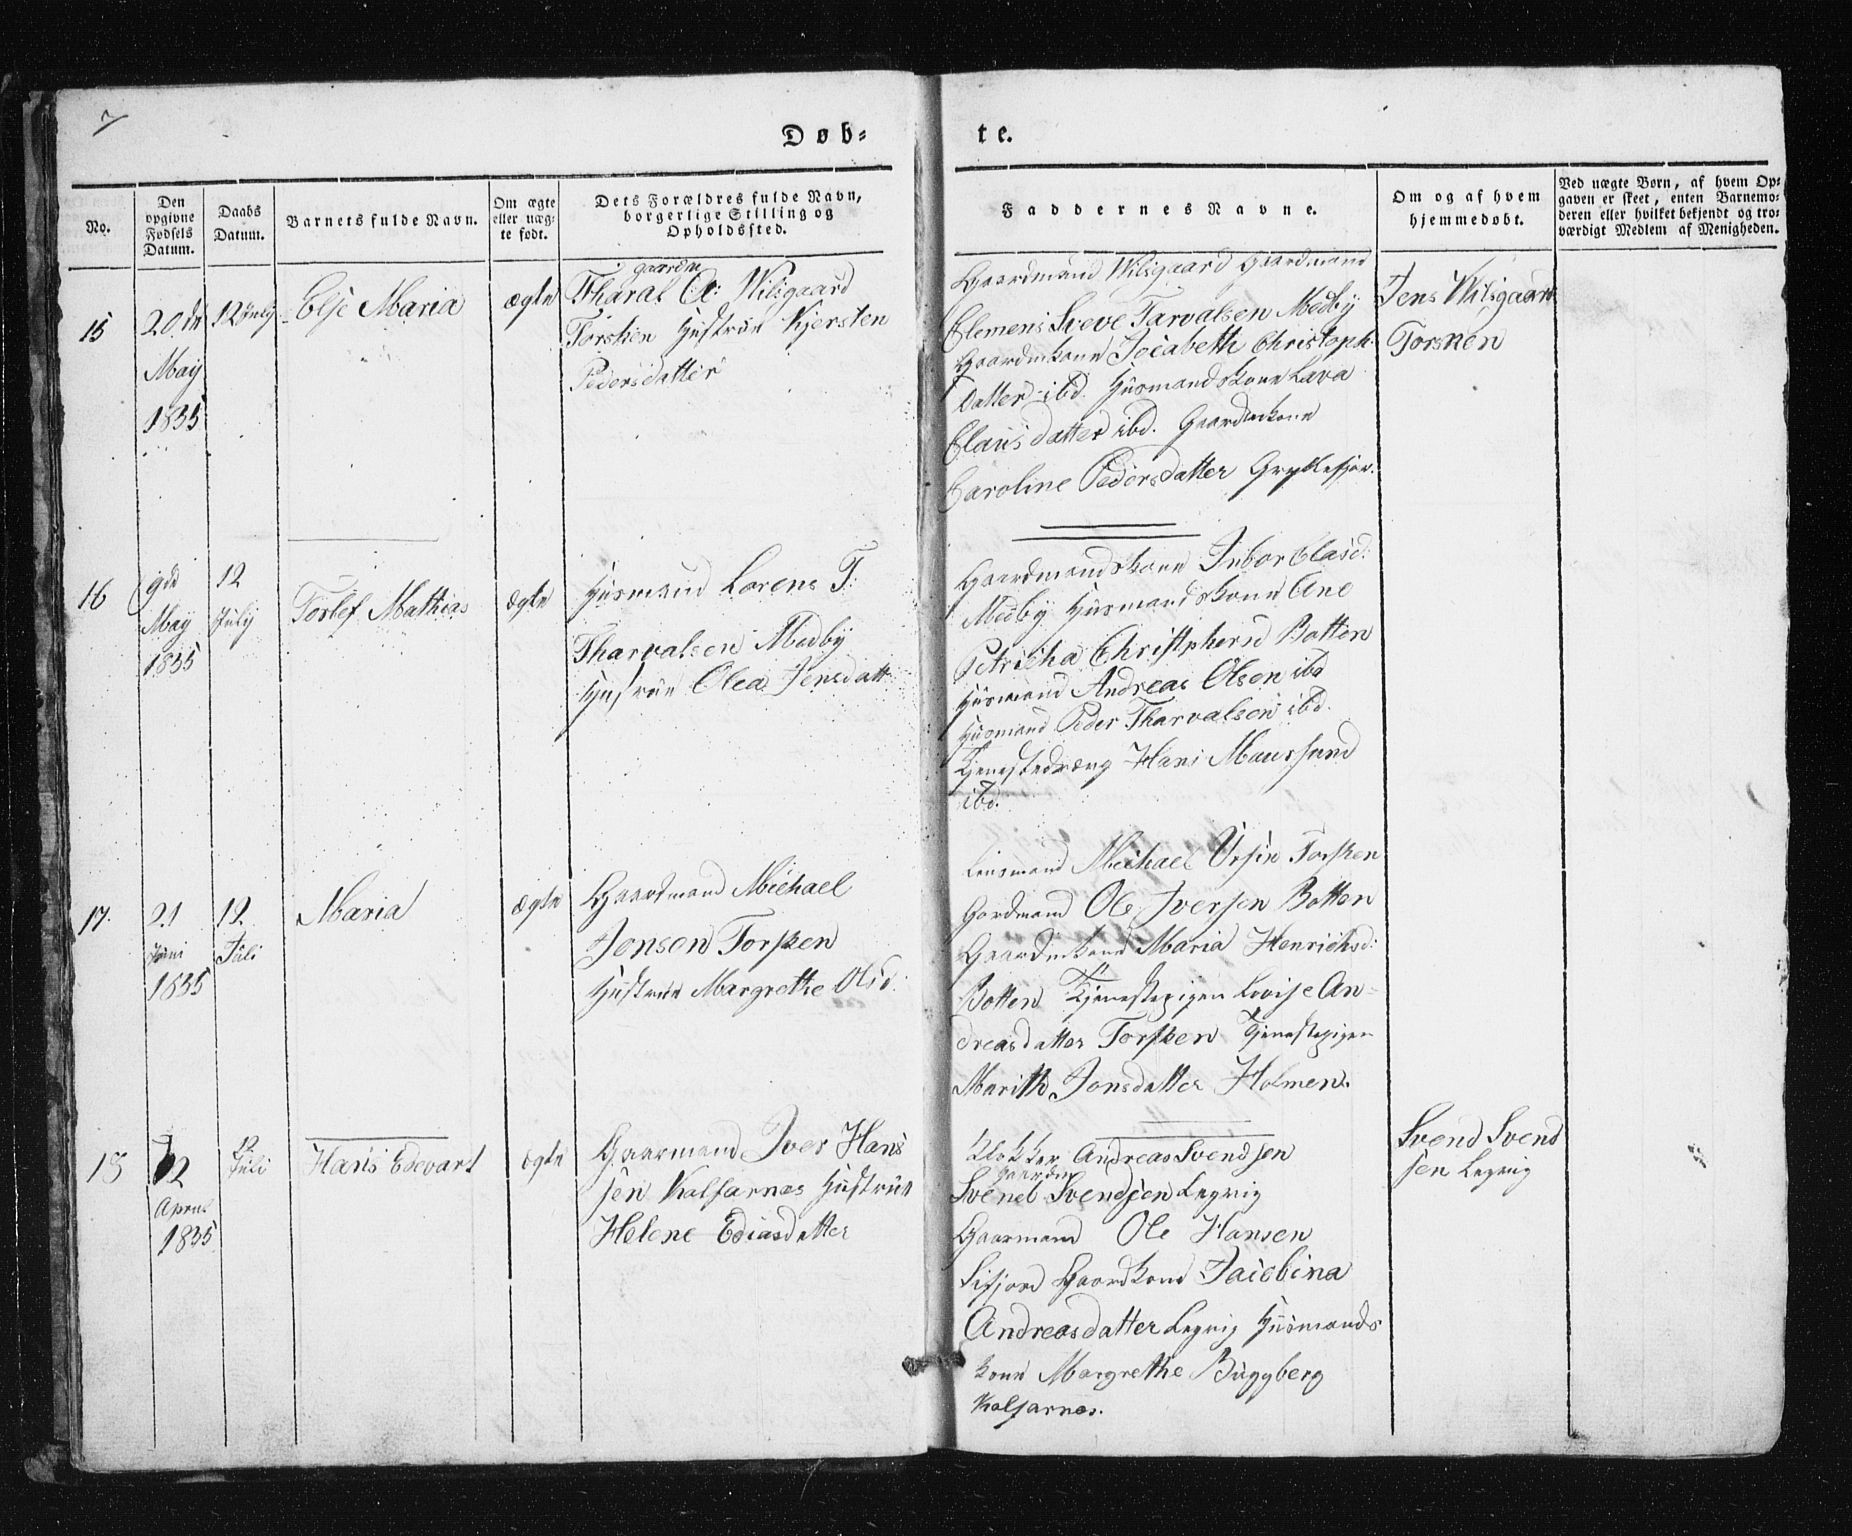 7
Døb-
te.
No.
Den opgivne Fødsels Datum.
Daabs Datum.
Barnets fulde Navn.
Om ægte eller uæg-te født.
Dets Forældres fulde Navn, borgerlige Stilling og Opholdssted.
Faddernes Navne.
Om og af hvem hjemmedøbt.
Ved uægte Børn, af hvem Op-gaven er skeet, enten Barnemo-deren eller hvilket bekjendt og tro-værdigt Medlem af Menigheden.
15
20de
May
1835
12 July
Else Maria
ægte
gaardm
Tharal O: Wilsgaard
Torsken Hustrue Kjersten
Pedersdatter
Gaardmand Wilsgaard Gaardmand
Clemens Sveve Tarvalsen Medby
Gaardmkone Jocabeth Christoph-
Datter ibd. Husmandskone Lava
Clausdatter ibd. Gaardmkone
Caroline Pedersdatter Gryllefjor.
Jens Wilsgaard
Torsken
16
9de
May
1835
12
July
Torlef Mathias
ægte
Husmand Lorens T:
Tharvalsen Medby
Hustrue Olea Jensdatt
Gaardmandskone Inbor Olasd:
Medby Husmandskone Ane
Petricha Christphersd Botten
Husmand Andreas Olsen ibd
Husmand Peder Tharvalsen ibd.
Tjenestedræng Hans Maursund
ibd.
17.
21
Juni
1835
12.
Juli
Maria
ægte
Gaardmand Michael
Jonsen Torsken
Hustrue Margrethe Olsd.
Lensmand Michael Ursin Torsken
Gordmand Ole Iversen Botten
Gaardmkone Maria Henrichsd:
Botten Tjenestepigen Lovise An-
dreasdatter Torsken Tjenestepigen
Marith Jonsdatter Holmen.
18
2
April
1835
12
Juli
Hans Edevart
ægte
Gaarmand Iver Hans
sen Kalfarnes Hustrue
Helene Ediasdatter
Klokker Andreas Svendsen
gaardm
Svend Svendsen Legvig
Gaarmand Ole Hansen
Sifjord Gaardkone Jacobina
Andreasdatter Legvig Husmands
kone Margrethe Buggberg
Kalfarnes.
Svend Svend
sen Legvig